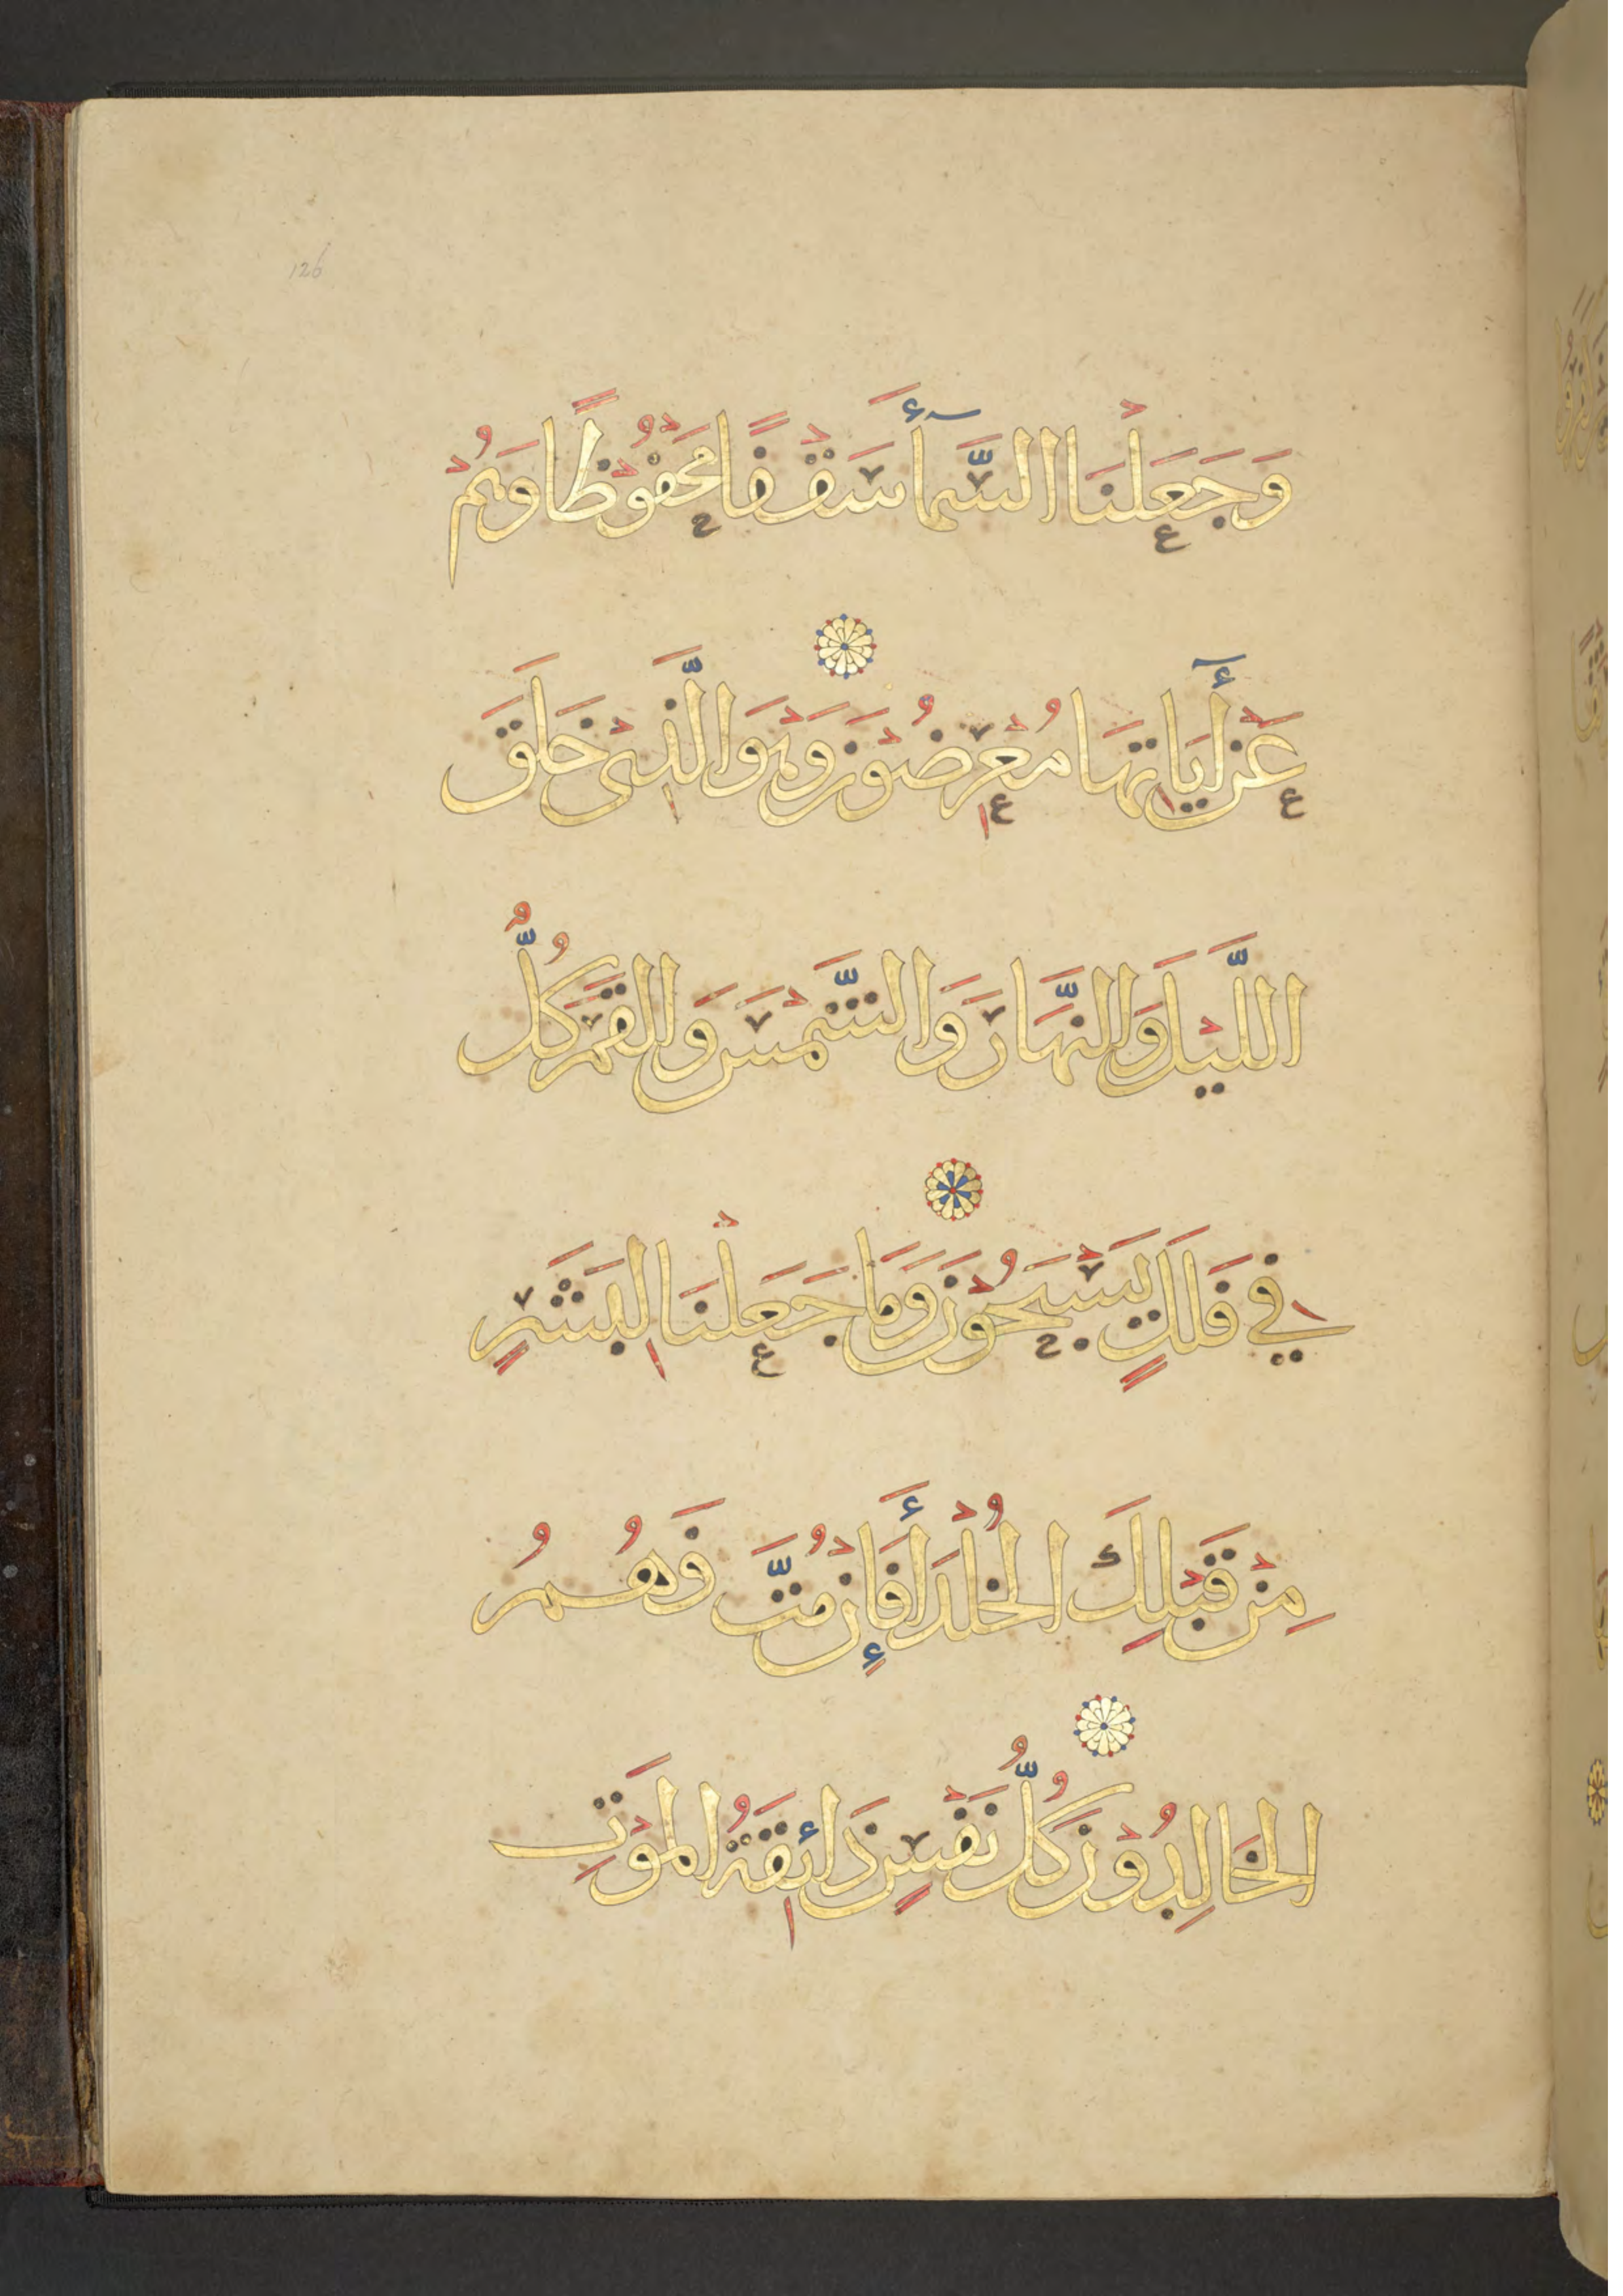 126
وَجَعَلْنَا السَّمَآءَ سَقْفًا مَحْفُوْظًا وَهُمْ
عَنْ أٰيَاتِهَا مُعْرِضُوْنَ وَهْوَ الَّذِىْ خَلَقَ
اللَّيْلَ وَالنَّهَارَ وَالشَّمْسَ وَالْقَمَرَ كُلٌّ
فِي فَلَكٍ يَسْبَحُوْنَ وَمَا جَعَلْنَا لِبَشَرٍ
مِنْ قَبْلِكَ الْخُلْدَ أَفَإِنْ مُتَّ فَهُمُ
الْخَالِدُوْنَ كُلُّ نَفْسٍ ذَائِقَةُ الْمَوْتِ